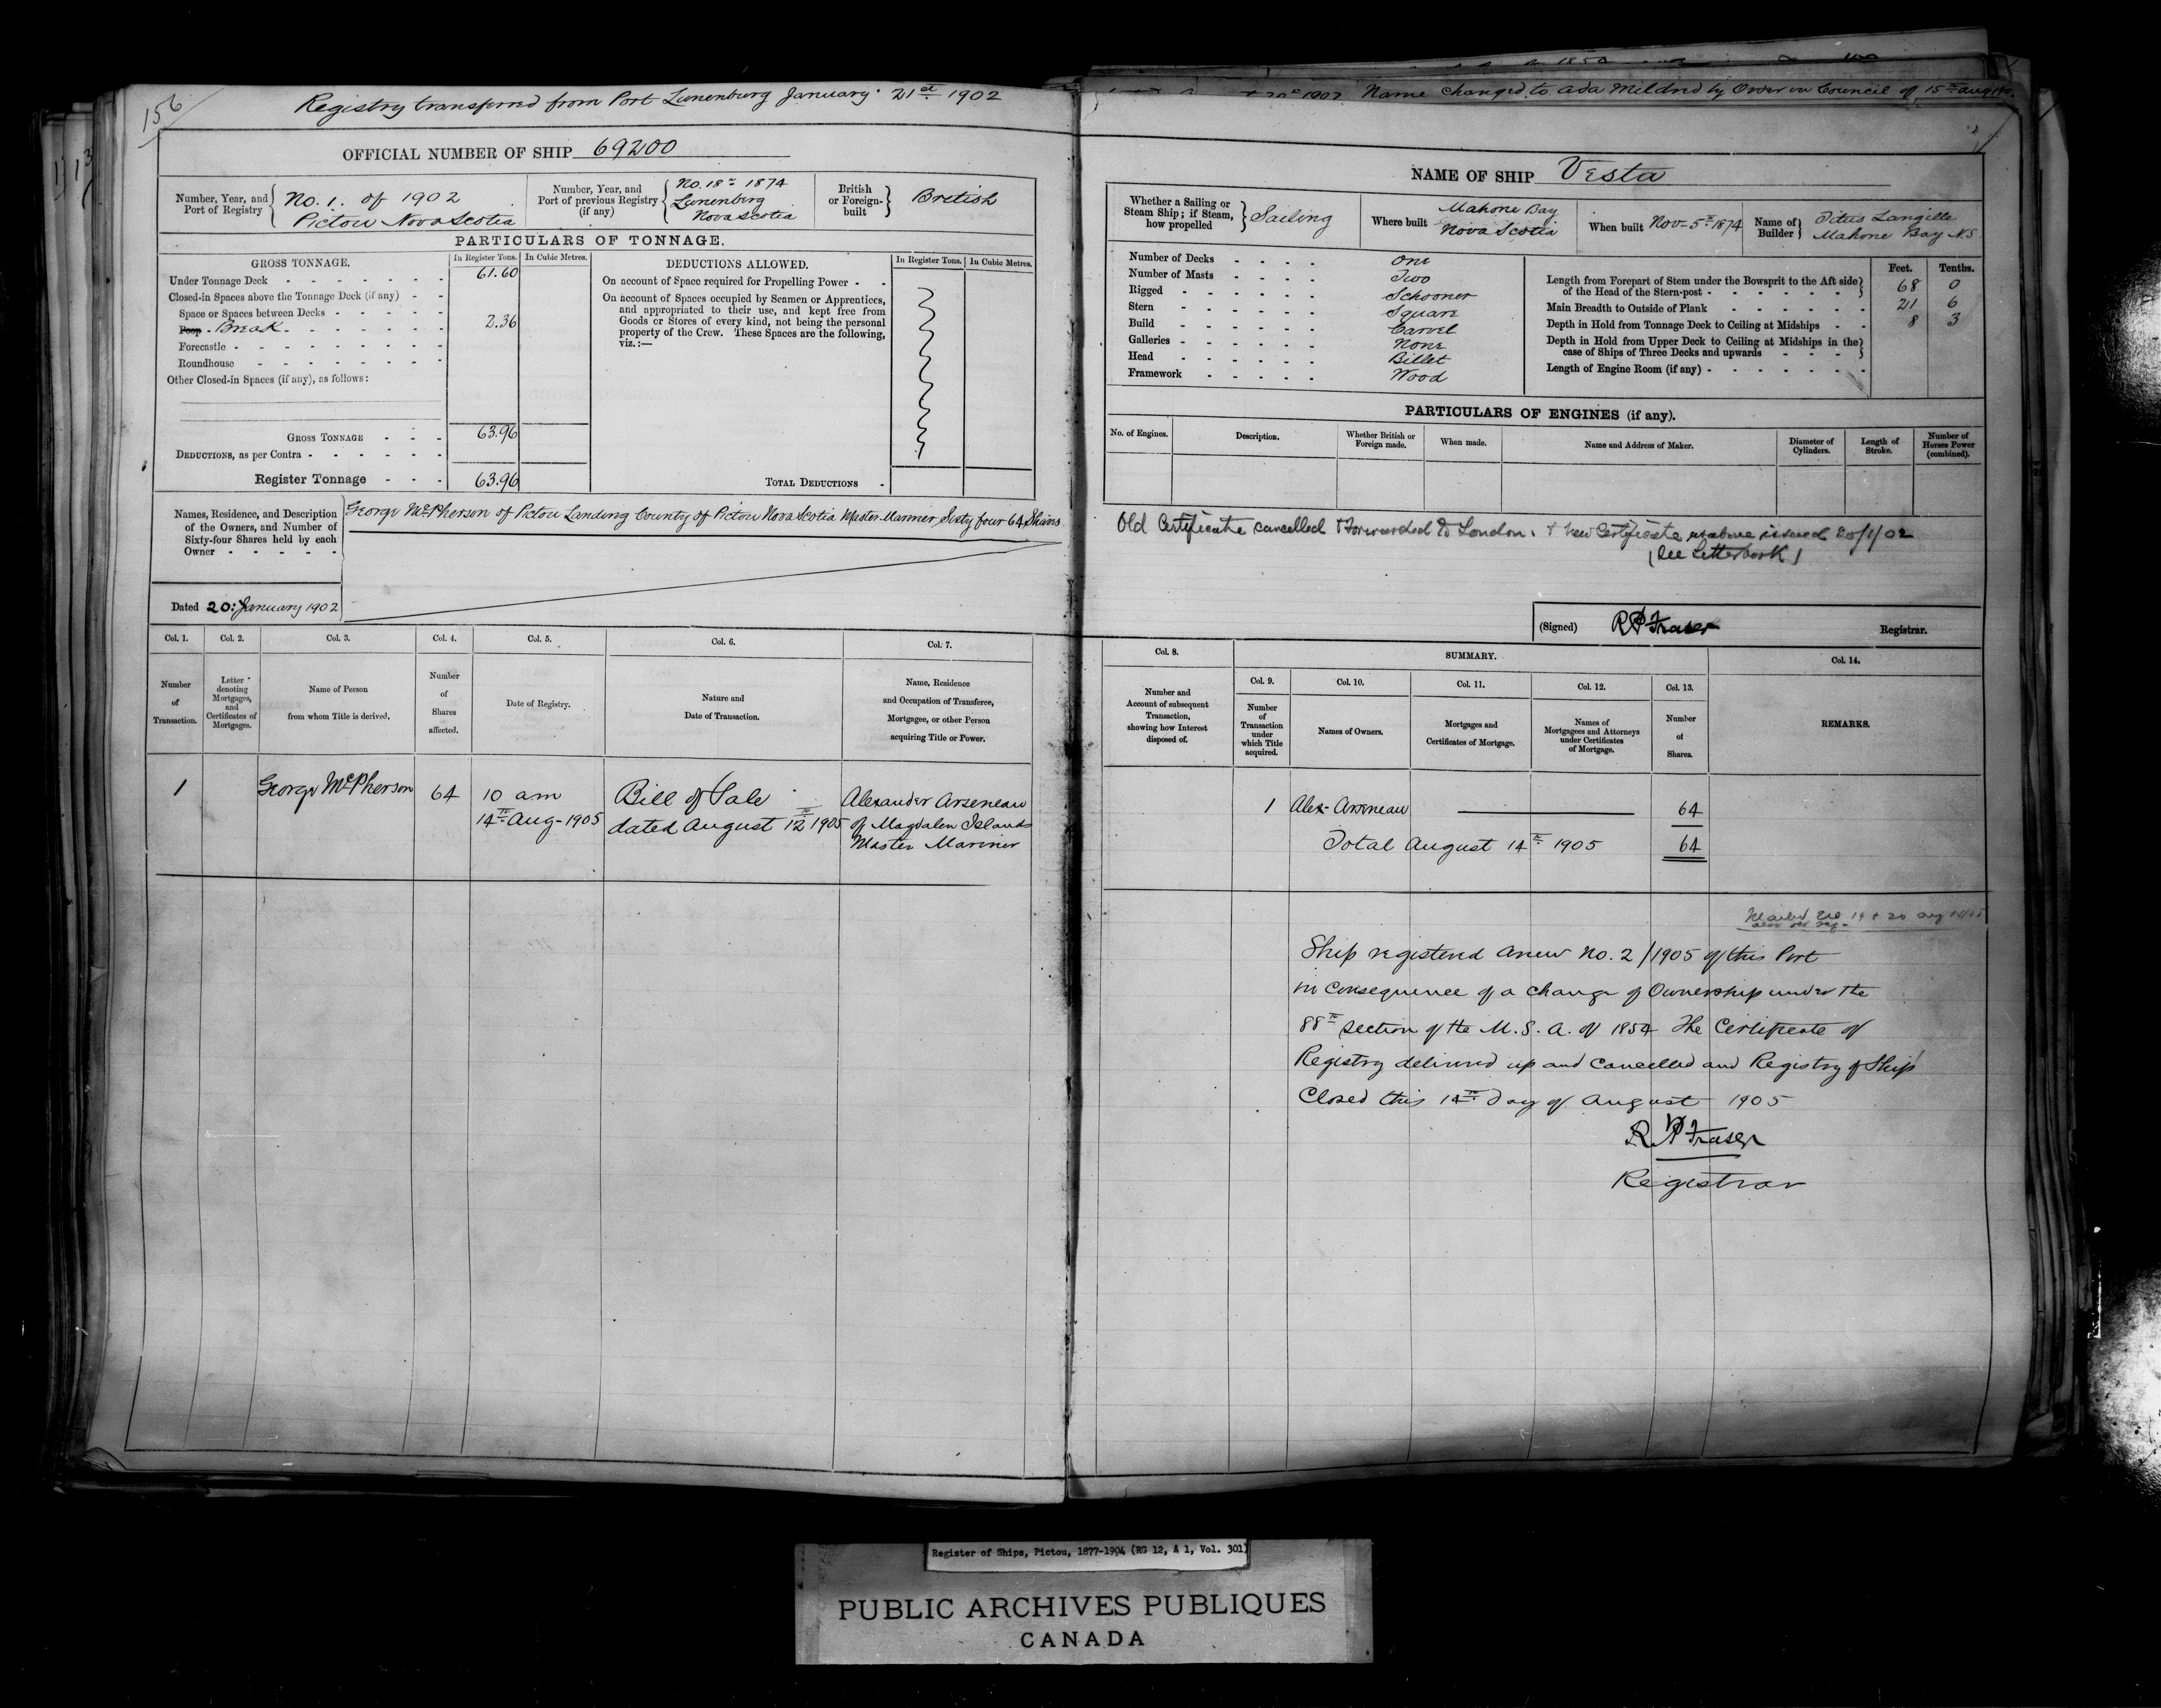 156
Registry transferred from Port Lunenburg January 21st 1902
OFFICIAL NUMBER OF SHIP 69200
Number, Year, and Port of Registry
No. 1. of 1902
Pictou Nova Scotia
Number, Year, and Port of previous Registry (if any)
No. 18 - 1874
Lunenberg
Nova Scotia
British or Foreign-built
British
PARTICULARS OF TONNAGE.
GROSS TONNAGE.
In Register Tons. In Cubic Metres.
DEDUCTIONS ALLOWED.
In Register Tons. In Cubic Metres.
Under Tonnage Deck 61.60
Closed-in Spaces above the Tonnage Deck (if any)
Space or Spaces between Decks
Poop Break 2.36
Forecastle
Roundhouse
Other Closed-in Spaces (if any), as follows:
GROSS TONNAGE 63.96
DEDUCTIONS, as per Contra
Register Tonnage 63.96
On account of Space required for Propelling Power
On account of Spaces occupied by Seamen or Apprentices,
and appropriated to their use, and kept free from
Goods or Stores of every kind, not being the personal
property of the Crew. These Spaces are the following,
viz.:—
TOTAL DEDUCTIONS
Names, Residence, and Description
of the Owners, and Number of
Sixty-four Shares held by each
Owner
George McPherson of Pictou Landing County of Pictou Nova Scotia Master Mariner Sixty four 64 Shares
Dated 20: January 1902
Col. 1. Col. 2. Col. 3. Col. 4. Col. 5. Col. 6. Col. 7.
Number of Transaction.
Letter denoting Mortgages, and Certificates of Mortgages.
Name of Person from whom Title is derived.
Number of Shares affected.
Date of Registry.
Nature and Date of Transaction.
Name, Residence and Occupation of Transferee, Mortgagee, or other Person acquiring Title or Power.
1 George McPherson 64
10 am
14th Aug - 1905
Bill of Sale
dated August 12th 1905
Alexander Arseneau
of Magdalen Islands
Master Mariner
1902 Name Changed to Ada Mildred by Order in Council of 15th Aug
NAME OF SHIP Vesta
Whether a Sailing or Steam Ship; if Steam, how propelled
Sailing
Where built
Mahone Bay
Nova Scotia
When built Nov - 5th 1874
Name of Builder
Titus Langille
Mahone Bay N.S.
Number of Decks One
Number of Masts Two
Rigged Schooner
Stern Square
Build Carvel
Galleries None
Head Billet
Framework Wood
Feet. Tenths.
Length from Forepart of Stem under the Bowsprit to the Aft side
of the Head of the Stern-post 68 0
Main Breadth to Outside of Plank 21 6
Depth in Hold from Tonnage Deck to Ceiling at Midships 8 3
Depth in Hold from Upper Deck to Ceiling at Midships in the
case of Ships of Three Decks and upwards
Length of Engine Room (if any)
PARTICULARS OF ENGINES (if any).
No. of Engines. Description. Whether British or Foreign made. When made. Name and Address of Maker. Diameter of Cylinders. Length of Stroke. Number of Horses Power (combined).
Old Certificate cancelled & Forwarded to London. & New Certificate as above issued 20/1/02
(See Letterbook)
(Signed) R P Fraser Registrar.
Col. 8.
Number and Account of subsequent Transaction, showing how Interest disposed of.
SUMMARY.
Col. 9. Col. 10. Col. 11. Col. 12. Col. 13.
Number of Transaction under which Title acquired.
Names of Owners.
Mortgages and Certificates of Mortgage.
Names of Mortgagees and Attorneys under Certificates of Mortgage.
Number of Shares.
Col. 14.
REMARKS.
1 Alex- Arseneau 64
Total August 14th 1905 64
Ship registered anew No. 2/1905 of this Port
in Consequence of a Change of Ownership under the
88th Section of the M. S. A. of 1854 The Certificate of
Registry delivered up and Cancelled and Registry of Ship
Closed this 14th Day of August 1905
R P Fraser
Registrar
Register of Ships, Pictou, 1877-1904 (RG 12, A 1, Vol. 301)
PUBLIC ARCHIVES PUBLIQUES
CANADA